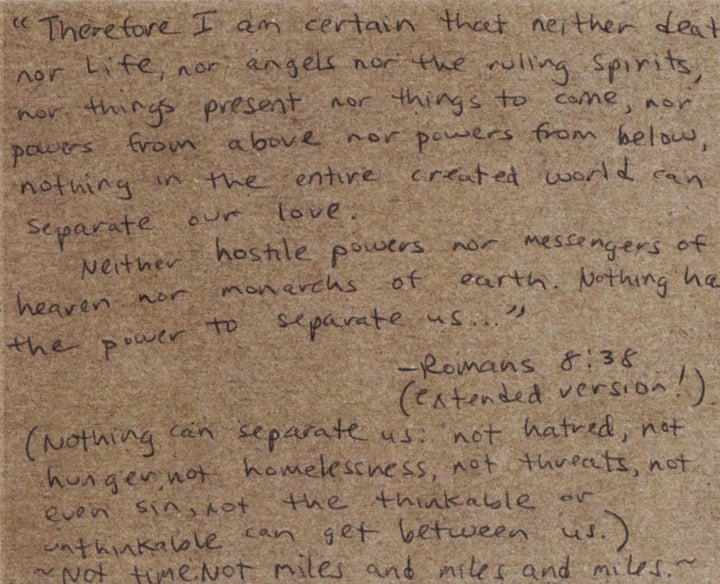 “Therefore I am certain that neither deat
nor Life, nor angels nor the ruling spirits,
nor things present nor things to come, nor
powers from above nor powers from below,
nothing in the entire created world can
separate our love.
Neither hostile powers nor messengers of
heaven nor monarchs of earth. Nothing ha
the power to separate us...”
-Romans 8:38
(extended version!)
(Nothing can separate us: not hatred, not
hunger, not homelessness, not threats, not
even sin, not the thinkable or
unthinkable can get between us.)
~Not time. Not miles and miles and miles.~